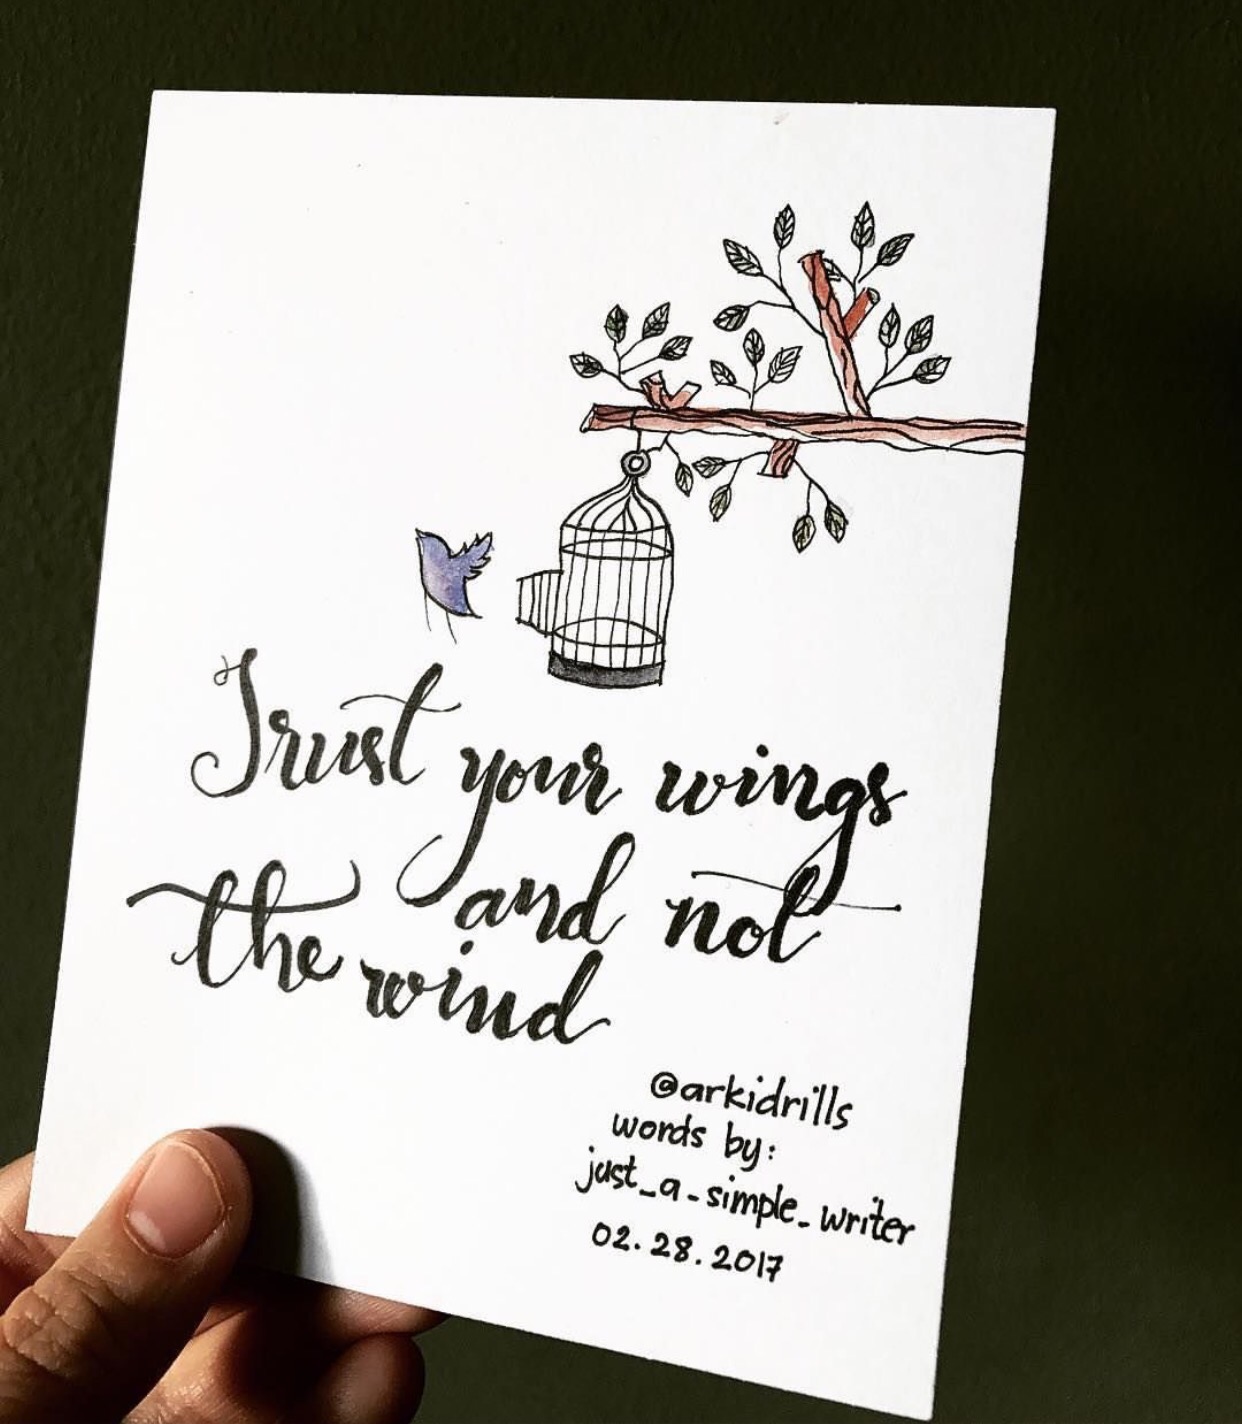 Trust your wings
and not
the wind
@arkidrills
words by:
just_a-simple_writer
02.28.2017